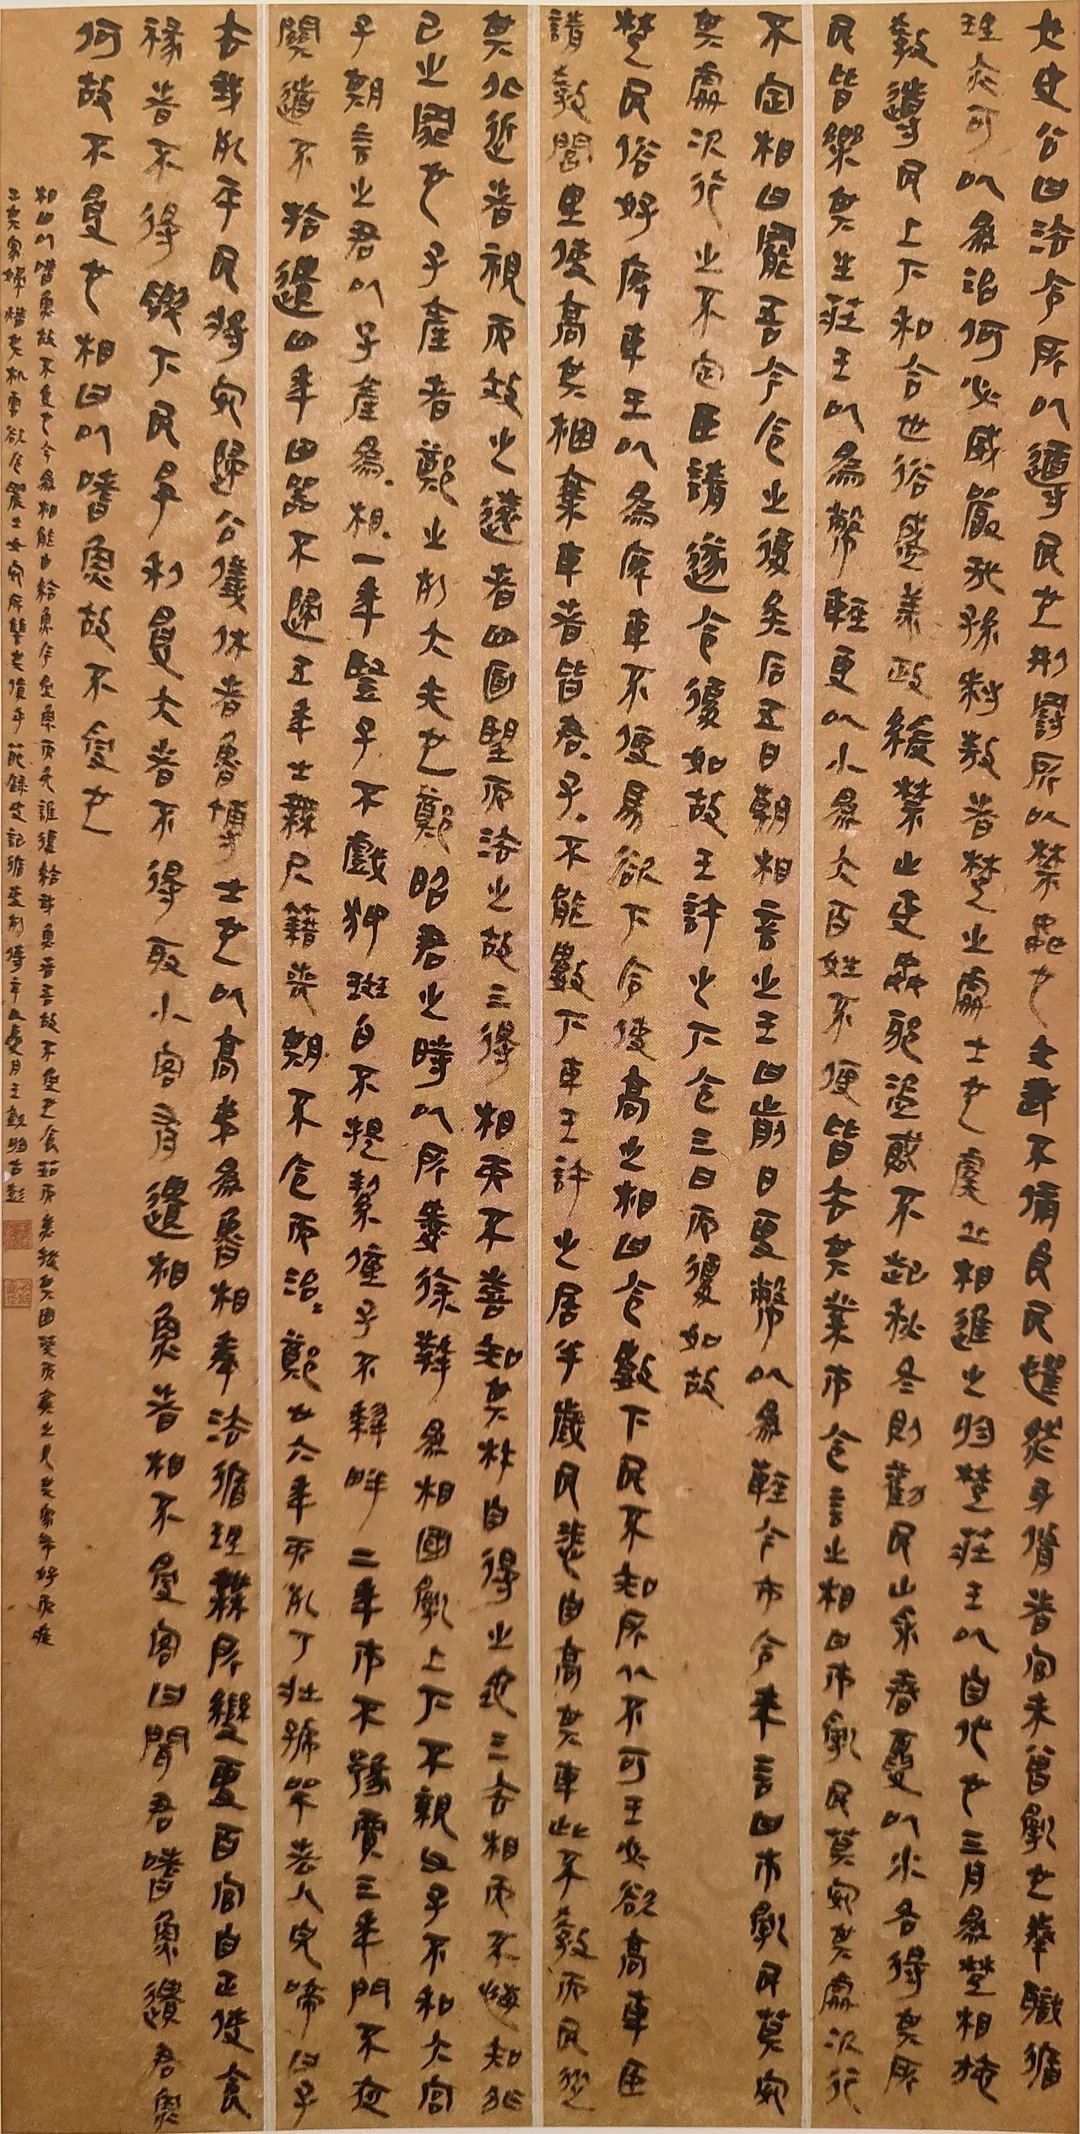 太史公曰法令所以導民也刑罰所以禁姦也文武不備良民懼然身脩者官未曾亂也奉職循
理亦可以為治何必威嚴哉孫叔敖者楚之處士也虞丘相進之於楚莊王以自代也三月為楚相施
教導民上下和合世俗盛美政緩禁止吏無姦邪盜賊不起秋冬則勸民山采春夏以水各得其所
民皆樂其生莊王以為幣輕更以小為大百姓不便皆去其業市令言之相曰市亂民莫安其處次行
不定相曰罷吾今令之復矣后五日朝相言之王曰前日更幣以為輕今市令來言曰市亂民莫安
其處次行之不定臣請遂令復如故王許之下令三日而復如故
楚民俗好庳車王以為庳車不便馬欲下令使高之相曰令數下民不知所从不可王必欲高車臣
請教閭里使高其梱乘車者皆君子不能數下車王許之居半歲民悉自高其車此不教而民從
其化近者視而效之遠者四面望而法之故三得相而不喜知其材自得之也三去相而不悔知非
己之罪也子產者鄭之列大夫也鄭昭君之時以所愛徐摯為相國亂上下不親父子不和大宮
子期言之君以子產為相一年豎子不戲狎斑白不提挈僮子不犁畔二年市不豫賈三年門不夜
關道不拾遺四年田器不歸五年士無尺籍喪期不令而治鄭廿六年而死丁壯號哭老人兒啼曰子
去我死乎民將安歸公儀休者魯博士也以高弟為魯相奉法循理無所變更百官自正使食
祿者不得與下民爭利受大者不得取小客有遺相魚者相不受客曰聞君嗜魚遺君魚
何故不受也相曰以嗜魚故不受也
相曰以嗜魚故不受也今為相能自給魚今受魚而免誰復給我魚者吾故不受也食茹而美拔其園葵而棄之見其家布好而疾
出其家婦燔其機云欲令農士工女安所讎其貨乎節錄史記循吏列傳辛丑夏月王於古彭